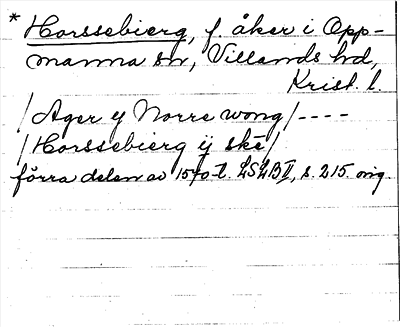 * Horssebierg, f. åker i Opp-
manna sn, Villands hd,
Krist. l.
/Ager y Norre wong/----
/Horssebierg ÿ skē/
förra delen av 1570-t. LSLB II, s. 215. orig.